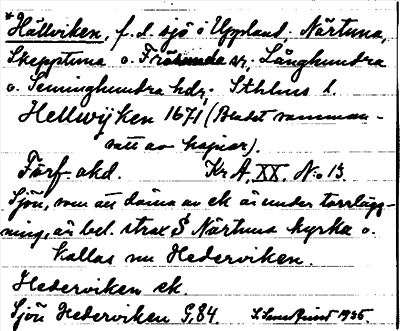 *Hällviken, f.d. sjö i Uppland, Närtuna,
Skepptuna o. Frösunda sr, Långhundra
o. Seminghundra hdr, Sthlms l.
Hellwijken 1671 (Bladet samman-
satt av kopior).
Förf. okd. KrA, XX. N:o 13.
Sjön, som att döma av ek är under torrlägg-
ning, är bel. strax S Närtuna kyrka o.
kallas nu Hederviken.
Hederviken ek.
Sjön Hederviken G, 84. 1936.